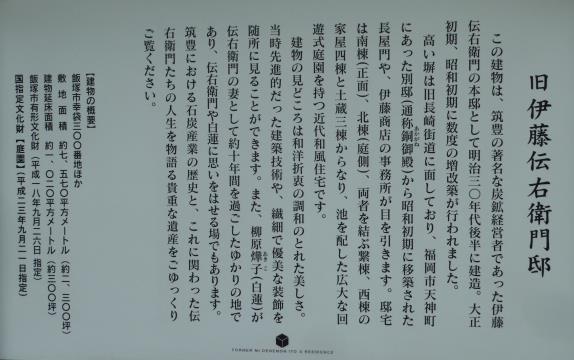 旧伊藤伝右衛門邸
この建物は、筑豊の著名な炭鉱経営者であった伊藤
伝右衛門の本邸として明治三〇年代後半に建造。大正
初期、昭和初期に数度の増改築が行われました。
高い塀は旧長崎街道に面しており、福岡市天神町
にあった別邸(通称銅御殿)から昭和初期に移築された
長屋門や、伊藤商店の事務所が目を引きます。邸宅
は南棟(正面)、北棟(庭側)、両者を結ぶ繋棟、西棟の
家屋四棟と土蔵三棟からなり、池を配した広大な回
遊式庭園を持つ近代和風住宅です。
建物の見どころは和洋折衷の調和のとれた美しさ。
当時先進的だった建築技術や、繊細で優美な装飾を
随所に見ることができます。また、柳原燁子(白蓮)が
伝右衛門の妻として約十年間を過ごしたゆかりの地で
あり、伝右衛門や白蓮に思いをはせる場でもあります。
筑豊における石炭産業の歴史と、これに関わった伝
右衛門たちの人生を物語る貴重な遺産をごゆっくり
ご覧ください。
【建物の概要】
飯塚市幸袋三〇〇番地ほか
敷地面積 約七、五七〇平方メートル(約二、三〇〇坪)
建物延床面積 約一、〇二〇平方メートル(約三〇〇坪)
飯塚市有形文化財(平成一八年九月二六日 指定)
国指定文化財【庭園】(平成二三年九月二一日指定)
FORMER Mr DENEMON ITO'S RESIDENCE